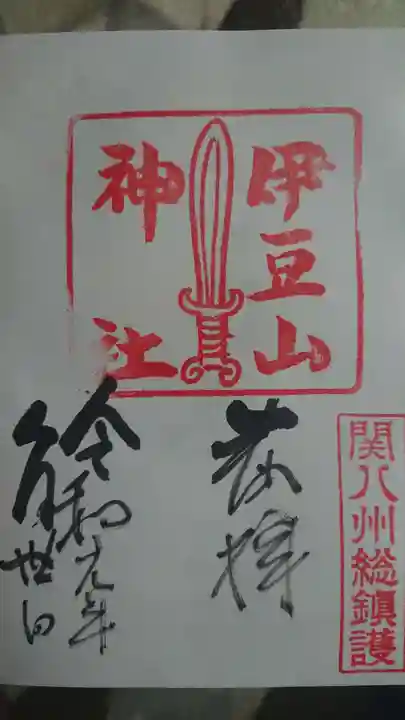 関八州総鎮護
伊豆山
神社
奉拝
令和元年